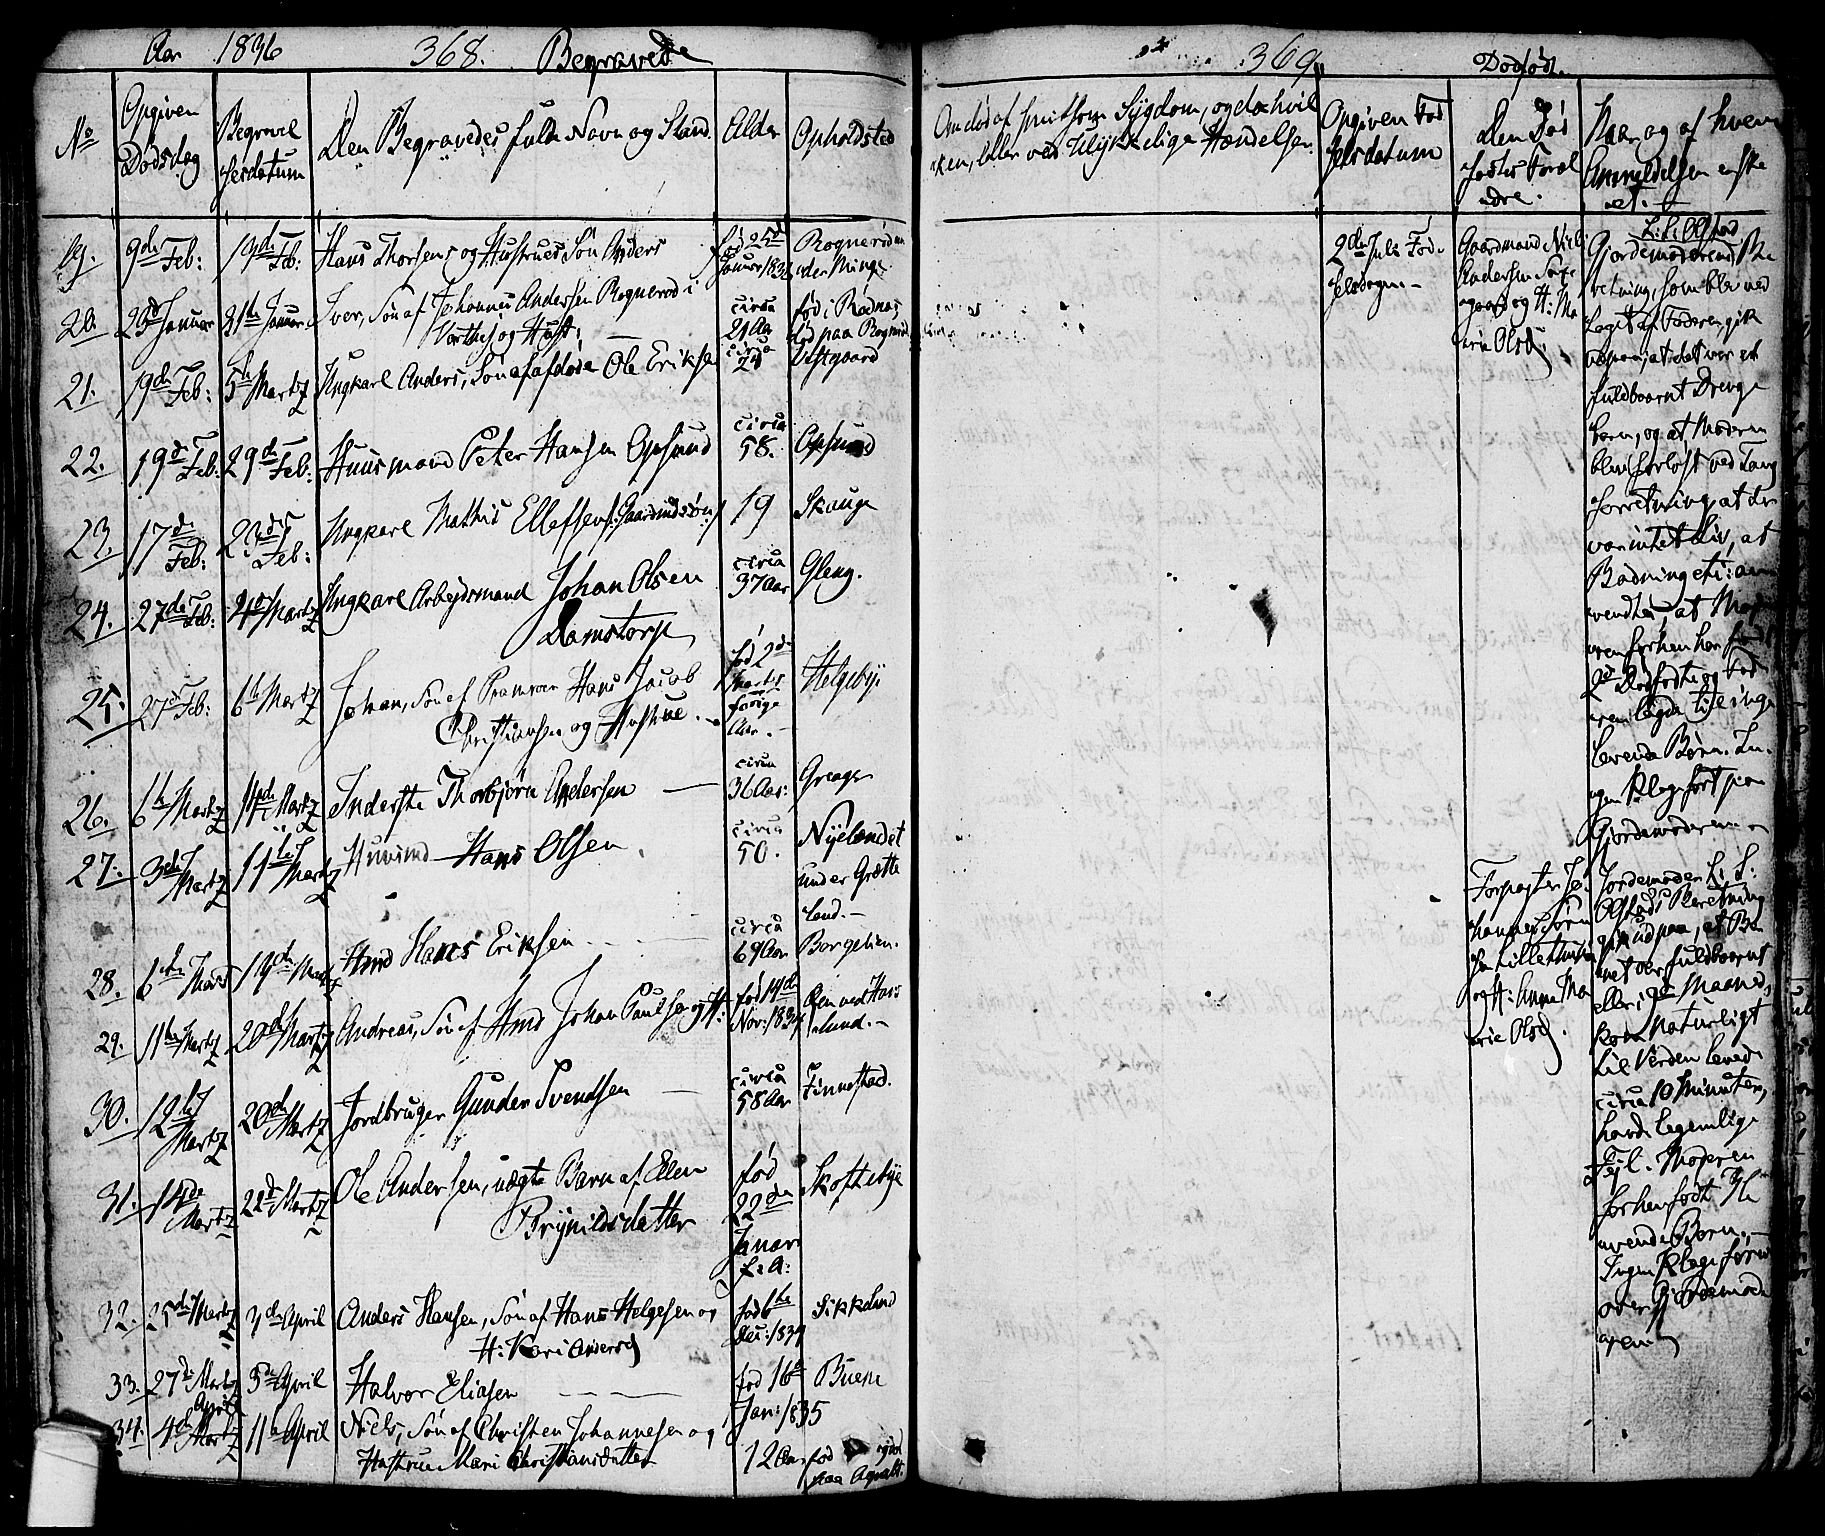 Aar 1836 368. Begravede
No
Opgiven Dødsdag
Begravelsesdatum
Den Begravedes fulde Navn og Stand.
Alder
Opholdsted
19. 9de Feb: 19de Feb: Hans Thorsens og Hustrues Søn Anders fød 25de Januar Rognerød under Minge
20. Januar 31te Januar Iver, Søn af Johannes Andersen Rognerød i
og Hust: circa 21 Aar fød i Rødnæs død paa Rognerød
21. 19de Feb: 5te Martz Ungkarl Anders, Søn af afdøde Ole Eriksen circa 24 Vestgaard
22. 19de Feb: 29de Feb: Huusmand Peter Hansen Opsund circa 58. Opsund
23. 17de Feb: 23de Feb: Ungkarl Mathis Ellefsen /:Gaardmdssøn:/ 19 Skauge
24. 27de Feb: Martz Ungkarl Arbejdsmand Johan Olsen circa 37 Aar Gleng.
Damstorp
25. 27de Feb: 6te Martz Johan, Søn af Hans Jacob
Christiansen og Hustrue. fød 2de Martz forrige Aar. Helgebye
26. 6te Martz 14de Martz Inderste Thorbjørn Andersen circa 36 Aar: Greager
27. 3de Martz 11te Martz Huusmd Hans Olsen circa 50. Nyelandet under Grotteland.
28. 6te Marts 19de Martz Hmd Hans Eriksen circa 69 Aar Borgelien.
29. 11te Martz 20de Martz Andreas, Søn af Hmd Johan Paulsen og H: fød 14de Nov: 1834 Øen ved Hasslund.
30. 12te Martz 20de Martz Jordbruger Gunder Svendsen circa 58 Aar Finnestad.
31. 14de Martz 22de Martz Ole Andersen, uægte Barn af Elen
Brynildsdatter fød 22de Januar f: A: Skoftebye
32. 25de Martz 3de April Anders Hansen, Søn af Hans Helgesen og
H: Kari Andersd fød 6te Dec: 1834 Sikkelund
33. 27de Martz 5te April Halvor Eliasen fød 16de Jan: 1835 Buene
34. 4de April 11te April Niels, Søn af Christen Johannesen og
Hustrue Mari Christiansdatter 12 Aar fød paa
369
Dødfødt.
Om død af smitsom Sygdom, og da hvilken, eller ved Ulykkelige Hændelser.
Opgiven Fødselsdatum
Den Dødfødtes Forældre.
Naar og af hvem Anmeldelsen er skeet.
2de Juls Fødselsdagen
Gaardmand Niels
Andersen
og H: Marie Olsd
L: L: Olstad
Gjordemoderens Beretning, som blev ved
lagt af Faderen gik
ud paa, at det var et
fuldbaarent Drenge
barn, og at Moderen
blev forløst ved Tang
forretning, at der
var intet Liv, at
Badning etc: anvendtes, at Moderen forhen har født
2de Dødfødte og
lagde til ingen
levende Børn. Ingen Klage ført paa
Gjordemoderen
Forpagter Johannes Sørensen
og H: Anne Marie Olsd.
Jordemoder L: L:
Olstads Beretning
gik ud paa, at Barnet var fuldbaaret
eller i 9de Maaned,
kom naturligt
til Verden levede
circa 10 Minuter,
havde legemlige
Fejl. Moderen
forhen født
levende Børn.
Ingen Klage ført
over Gjordemoderen